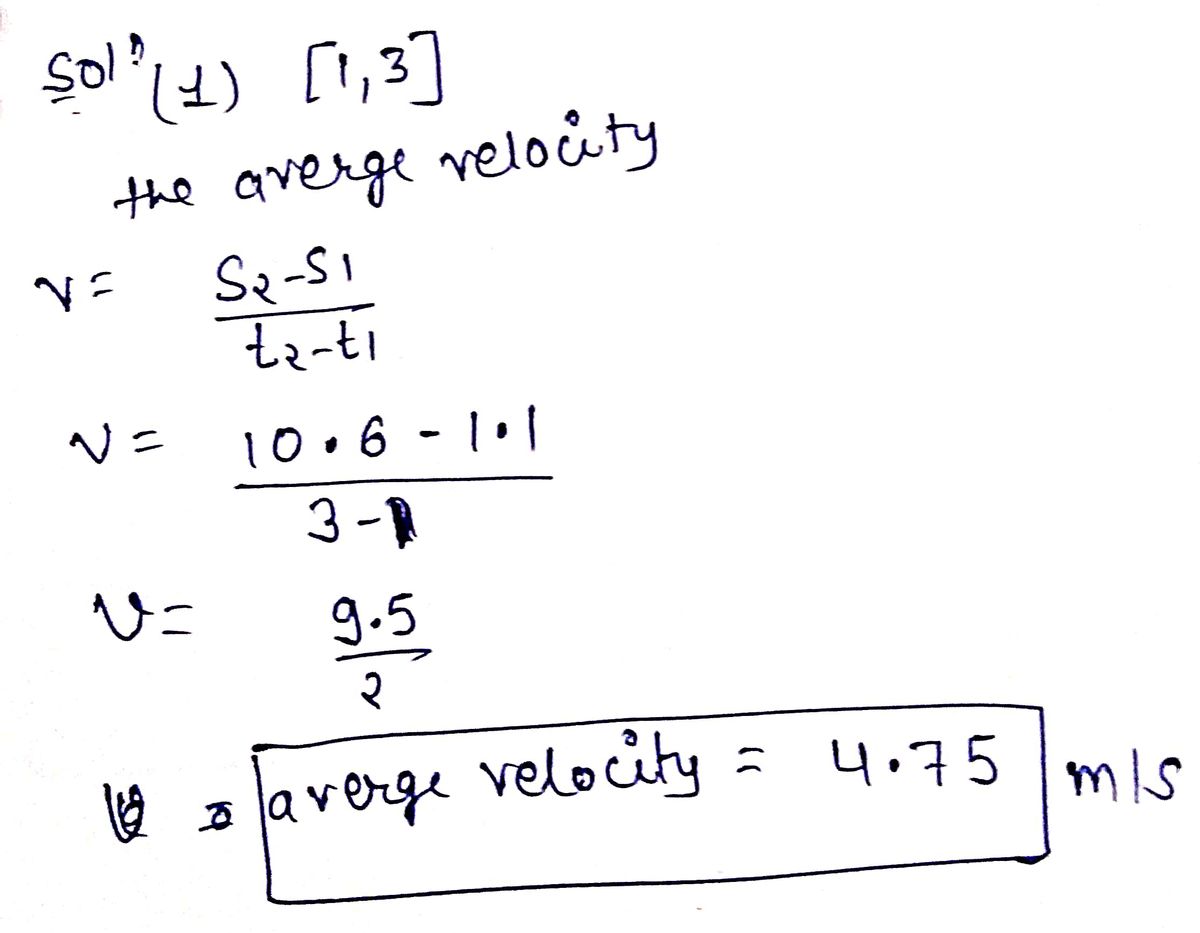 Solⁿ (1) [1,3]
the averge velocity
v = S2-S1
t2-t1
v = 10.6 - 1.1
3-1
v = 9.5
2
averge velocity = 4.75 m/s